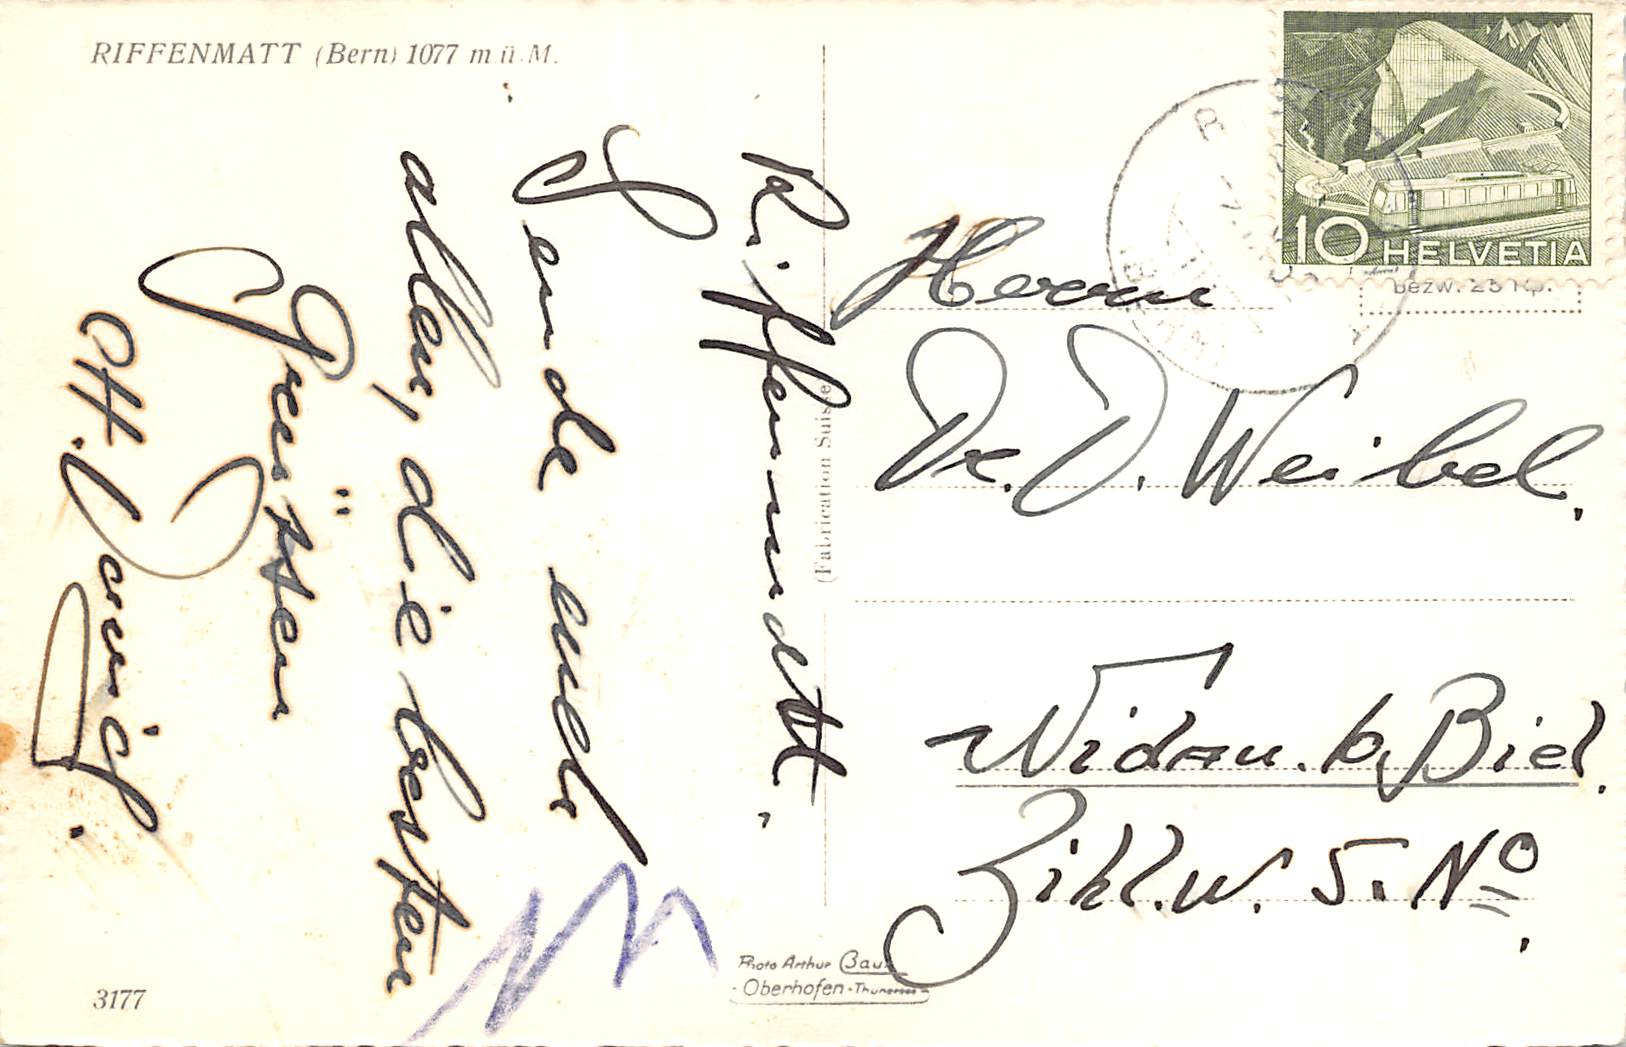 RIFFENMATT (Bern) 1077 m ü. M.
Riffenmatt,
Sende euch
allen, die besten
Grüssen
Herrn
Dr. D. Weibel,
Nidau. b. Biel.
Zihl.w. 5. Nº.
10 HELVETIA
bezw. 25 Rp.
(Fabrication Suisse)
Photo Arthur Baur
Oberhofen-Thunersee
3177